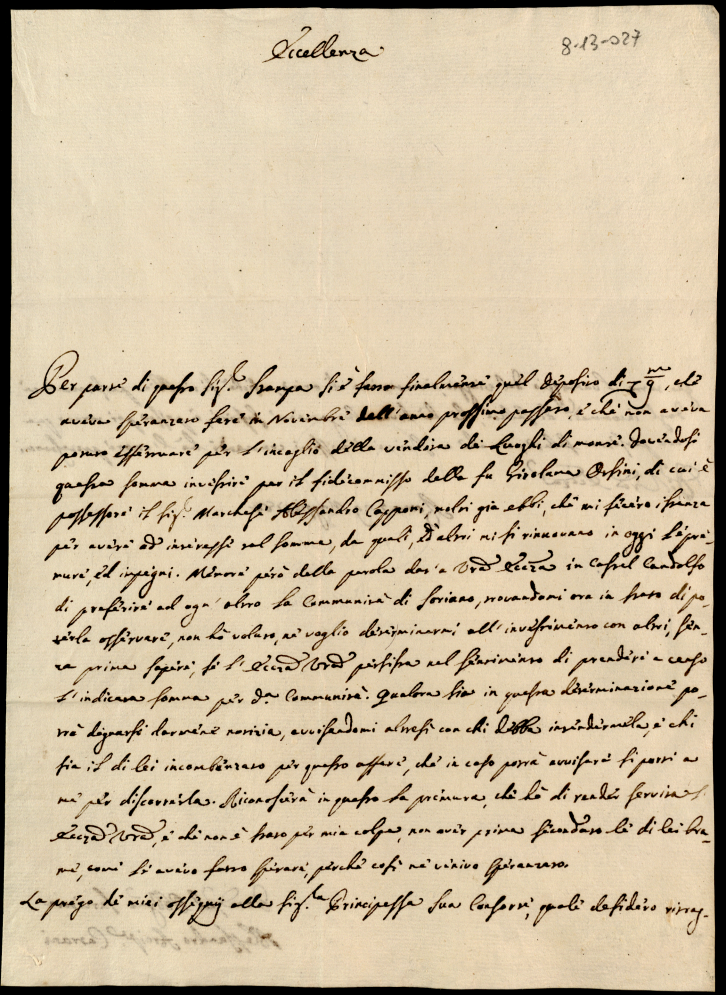 Eccellenza
8-13-027
Per parte di questo Sig.r Stampa si è fatto finalmente quel deposito di , che
aveva speranzato fare in Novembre dell'anno prossimo passato, e che non aveva
potuto effettuare per l'incaglio della vendita de Luoghi di monte. Dovendosi
questa somma investire per il fidecommisso della fu Girolama Orsini, di cui è
possessore il Sig.r Marchese Alessandro Capponi, molti già ebbi, che mi fecero istanza
per avere ad interesse tal somma, da quali, ed altri mi si rinnovano in oggi le pre-
mure, ed impegni. Memore però della parola data a Vrã Eccza in Castel Candolfo
di preferire ad ogn'altro la Communità di Soriano, trovandomi ora in stato di po-
terla osservare, non hò voluto, nè voglio determinarmi all'investimento con altri, sen-
za prima sapere, se l'Eccza Vrã persista nel sentimento di prendere a censo
l'indicata somma per d.a Communità. Qualora sia in questa determinazione po-
trà degnarsi darmene notizia, avvisandomi altresì con chi debba intendermela, e chi
sia il di lei incombenzato per questo affare, che in caso potrà avvisare si porti a
me per discorrerla. Riconoscerà in questo la premura, che hò di render servita l'
Eccza Vrã, e che non è stato per mia colpa, non aver prima secondate le di lei bra-
me, come li avevo fatto sperare, perchè così ne vivevo speranzato.
La prego de miei ossequij alla Sig.ra Principessa Sua Consorte, quale desidero ristag-